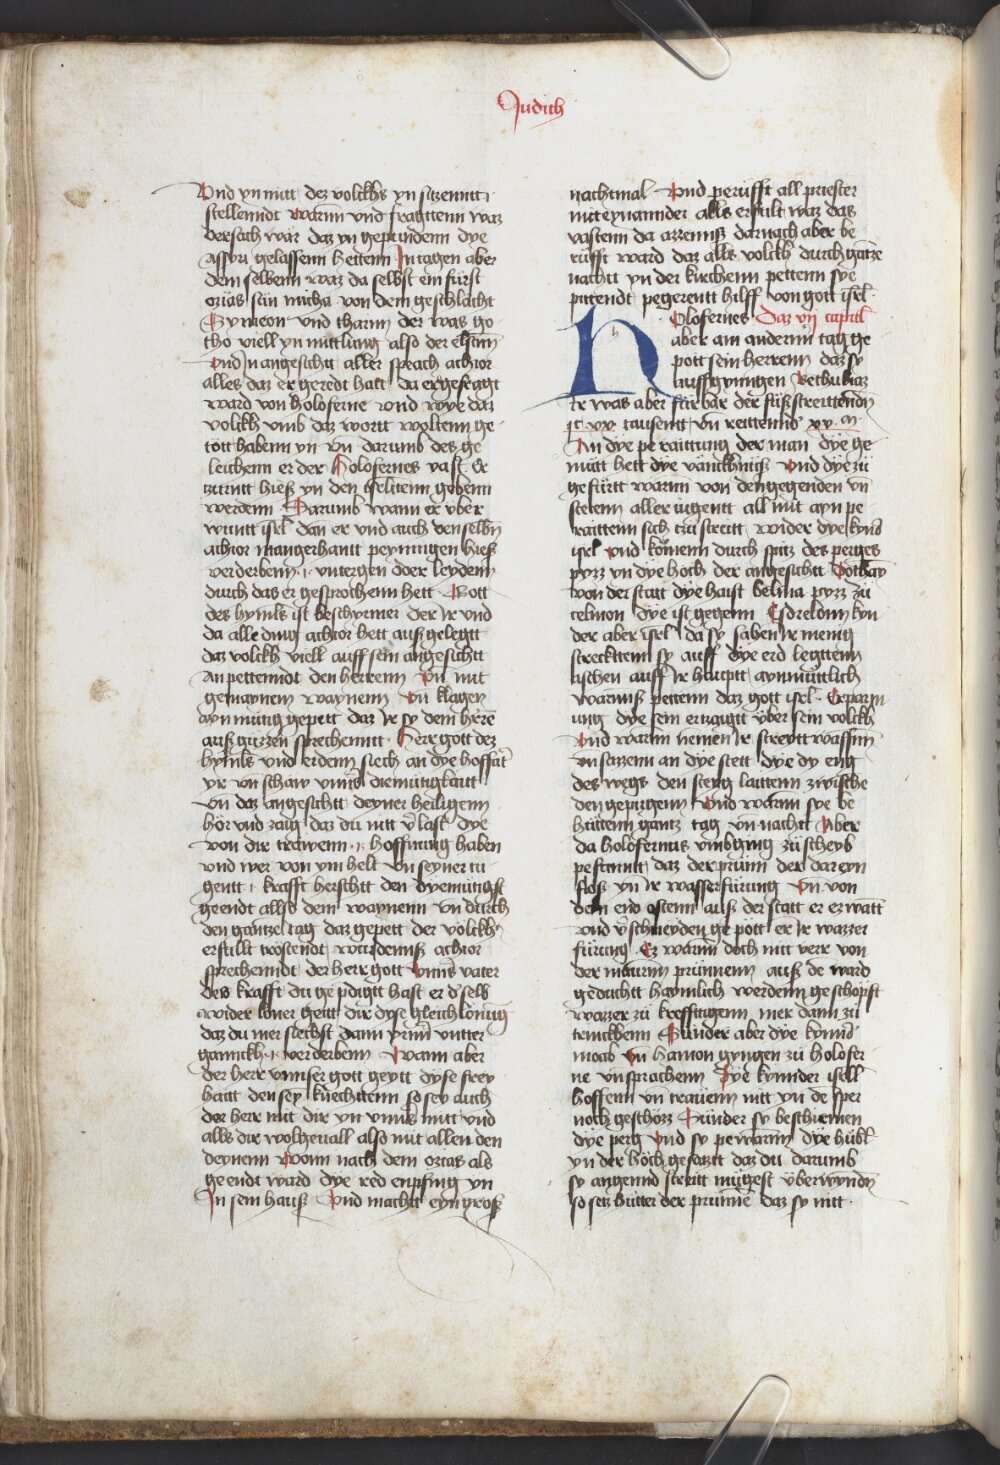 Judith
Vnd yn mitt dez volckhs yn sitzennt
stellenndt warnn vnd fragttenn waz
versach war daz yn gepundenn dye
assyri gelassenn hettenn In tagen aber
dem selbenn waz da selbst ein fürst
ozias sun micha von dem geschlächt
Symeon vnd tharmj der was go
tho viell yn mittlung also der elstnn
vnd in angesichtt aller sprach achior
alles daz er geredt hatt da er gefragt
ward von holoferne vnd wye daz
volckh vmb daz wortt woltenn ge
tött habenn yn vn darumb des ge
leichenn er der Holofernes vast er
zürntt hieß yn den israhelitenn gebenn
werdenn Darumb wann er vber
wintt isrl dan er vnd auch den selbn
achior mangerhantt peynnigen hieß
verderbenn .i. vntergen oder leydenn
durch das er gesprochenn hett Gott
des hymls ist beschyrmer der ir vnd
da alle ding achior hett außgelegtt
daz volckh viell auff sein angesichtt
an pettenndt den herrenn Vn mit
gemaynem waynenn vn klagen
aynmütig gepett daz ir sy dem herre
auß guzzen sprechenntt Herr gott dez
hymls vnd erdenn siech an dye hoffart
yr vn schaw vnnser diemütigkaitt
vn daz angesichtt deyner heiligenn
hör vnd zaig daz du nitt v̾last dye
von dir trawenn .i. hoffnung haben
vnd wer von ym helt vn seyner tu
gentt .i. krafft herschtt den dyemütigst
geendt allso dem waynenn vn durch
den gantze tag daz gepett der völckh
erfüllt tröstendt wurdennß achior
sprechenndt der herr gott vnnser vater
des krafft du geprdigtt hast er d̾ selb
wider loner geitt dir dyse gleichlonung
daz du mer siechst dann yrnn vntter
ganckh .i. verderbenn Wann aber
der herr vnnser gott geytt dyse frey
haitt den sey knechttenn so sey auch
der herr mit dir yn vnns mitt vnd
alls dir wolgeuall also mit allen den
deynenn Wonn nach dem ozias als
geendt ward dye red enpfing yn
In sein hauß Vnd machtt eyn groß
nachtmal Vnd perüfft all priester
mit eynannder alls erfült waz das
vastenn da azzennß darnach aber be
rüfft ward daz alls volckh durch gatze
nachtt yn der kirchenn pettenn sye
pittendt pegerentt hilff von gott isrl
Holofernes Daz vii capitl
aber am anderm tag ge
pott sein herrenn daz sy
auffgyningen Bethuliaz
Er was aber fürbar der fußstreittendn
ic xx tausentt vn reittennd xx m
In dye peraittung der man dye ge
mütt hett dye vänckhniß vnd dye zü
gefürtt warnn von den gegenden vn
stetenn aller iugentt all mit ayn pe
raittenn sich tzü streitt wider dye kynd
isrl vnd komenn durch spitz des perges
pyzz yn dye höch der angesichtt Dothay
von der statt dye haist belma pyzz zü
celmon dye ist gegenn Esdrelonn kyn
der aber isrl da sy sahen ir menig
streckttenn sy auff dye erd legttenn
aschen auff ir hauptt aynmütlich
warnnß pettenn daz gott isrl Erparm
ung dye sein ertzaigtt vber sein volckh
Vnd warnn nemen ir streyttwaffnn
vn sazzenn an dye stett dye dy eng
des wegs den steyg laittenn zwische
den gepirgenn vnd warnn sye be
hüttenn gantz tag vn nachtt Aber
da holofernus vmbging zü scheyb
pefanntt daz der prunn der dareyn
floß yn ir wasserfürung vn von
dem end ostenn auß der statt er erwatt
vnd v̾schneyden gepött er ir wazzer
fürung Ez warnn doch nit verr von
der maurnn prünnenn auß de ward
gedachtt haymlich werdenn geschöpft
wazzer zü krefftigenn mer dann zü
trinckhenn Sunder aber dye kynnd
moab vn hamon gyngen zü holofer
ne vn sprachenn Dye kynnder isrll
hoffenn vn trauenn nitt yn de sper
noch geschozz Sünder sy beschirmen
dye perg Vnd sy pewarnn dye hübl
yn der höch gesatzt daz du darumb
sy angennd streitt mügest vberwyndn
so setz hütter der prünne daz sy nitt